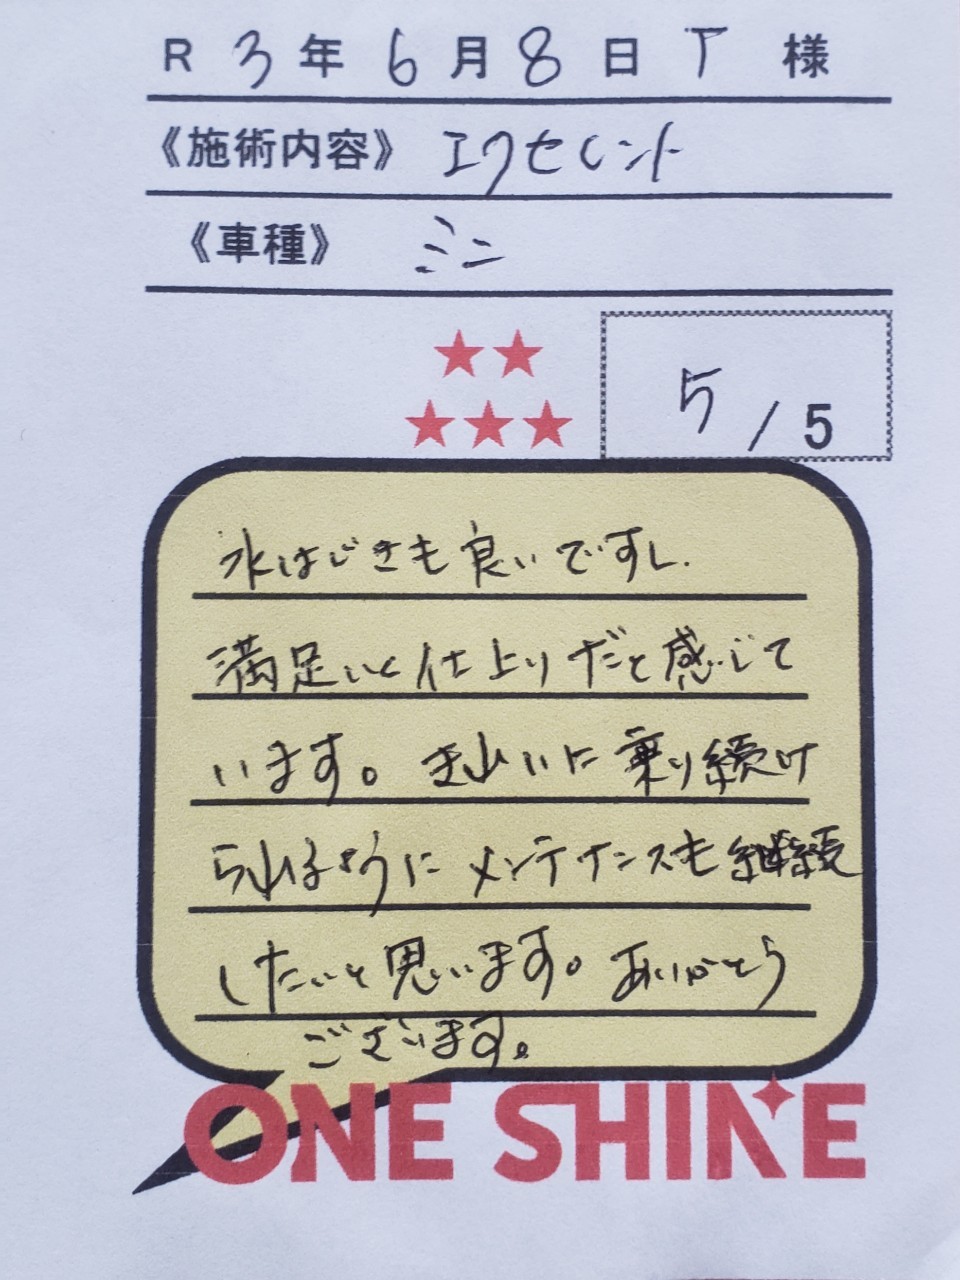 R 3年 6月 8日 T 様
《施術内容》 エクセレント
《車種》 ミニ
5 / 5
水はじきも良いですし.
満足いく仕上りだと感じて
います。きれいに乗り続け
られるようにメンテナンスも継続
したいと思います。ありがとう
ございます。
ONE SHINE